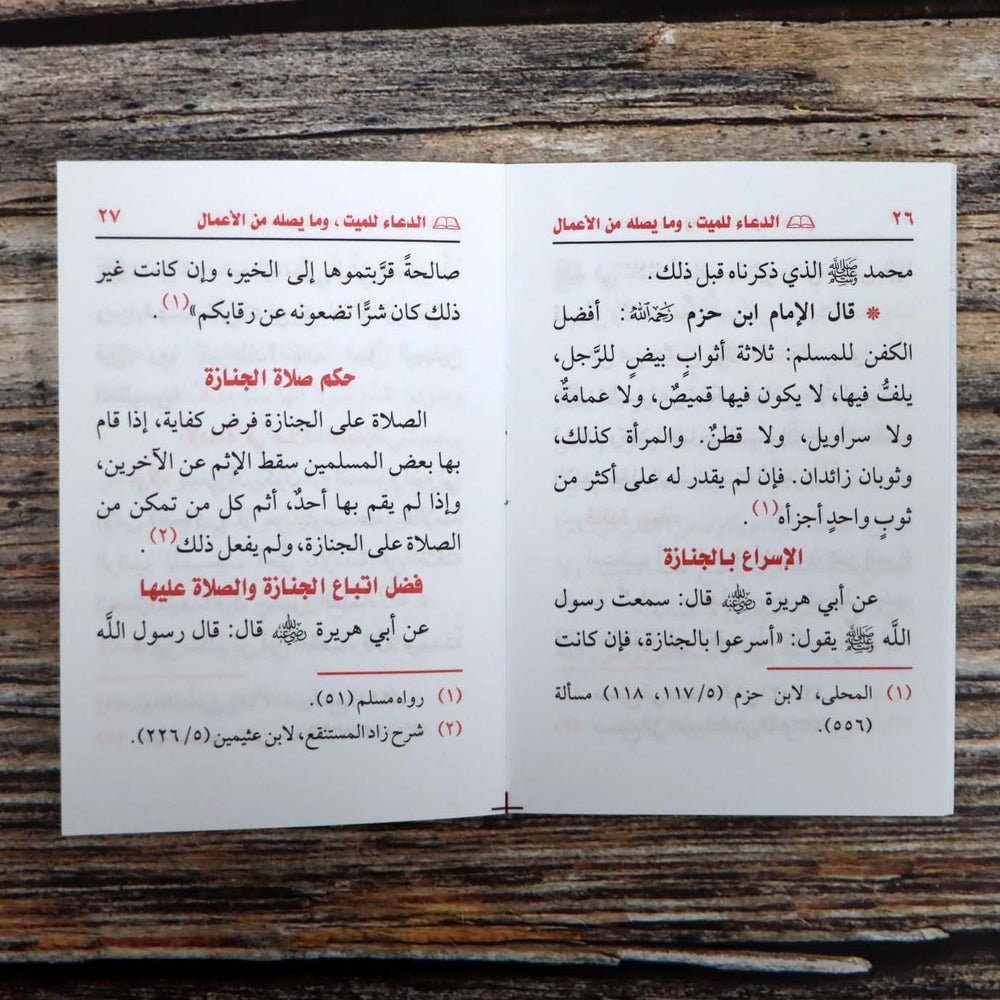 ٢٦ الدعاء للميت ، وما يصله من الأعمال
محمد ﷺ الذي ذكرناه قبل ذلك.
❋ قال الإمام ابن حزم رَحِمَهُ اللَّهُ: أفضل
الكفن للمسلم: ثلاثة أثوابٍ بيضٍ للرَّجل،
يلفُّ فيها، لا يكون فيها قميصٌ، ولا عمامةٌ،
ولا سراويل، ولا قطنٌ. والمرأة كذلك،
وثوبان زائدان. فإن لم يقدر له على أكثر من
ثوبٍ واحدٍ أجزأه(١).
الإسراع بالجنازة
عن أبي هريرة رَضِيَ اللَّهُ عَنْهُ قال: سمعت رسول
اللَّه ﷺ يقول: «أسرعوا بالجنازة، فإن كانت
(١) المحلى، لابن حزم (٥/ ١١٧، ١١٨) مسألة
(٥٥٦).
الدعاء للميت ، وما يصله من الأعمال ٢٧
صالحةً قرَّبتموها إلى الخير، وإن كانت غير
ذلك كان شرًّا تضعونه عن رقابكم»(١)
حكم صلاة الجنازة
الصلاة على الجنازة فرض كفاية، إذا قام
بها بعض المسلمين سقط الإثم عن الآخرين،
وإذا لم يقم بها أحدٌ، أثم كل من تمكن من
الصلاة على الجنازة، ولم يفعل ذلك(٢).
فضل اتباع الجنازة والصلاة عليها
عن أبي هريرة رَضِيَ اللَّهُ عَنْهُ قال: قال رسول اللَّه
(١) رواه مسلم (٥١).
(٢) شرح زاد المستنقع، لابن عثيمين (٥/ ٢٢٦).